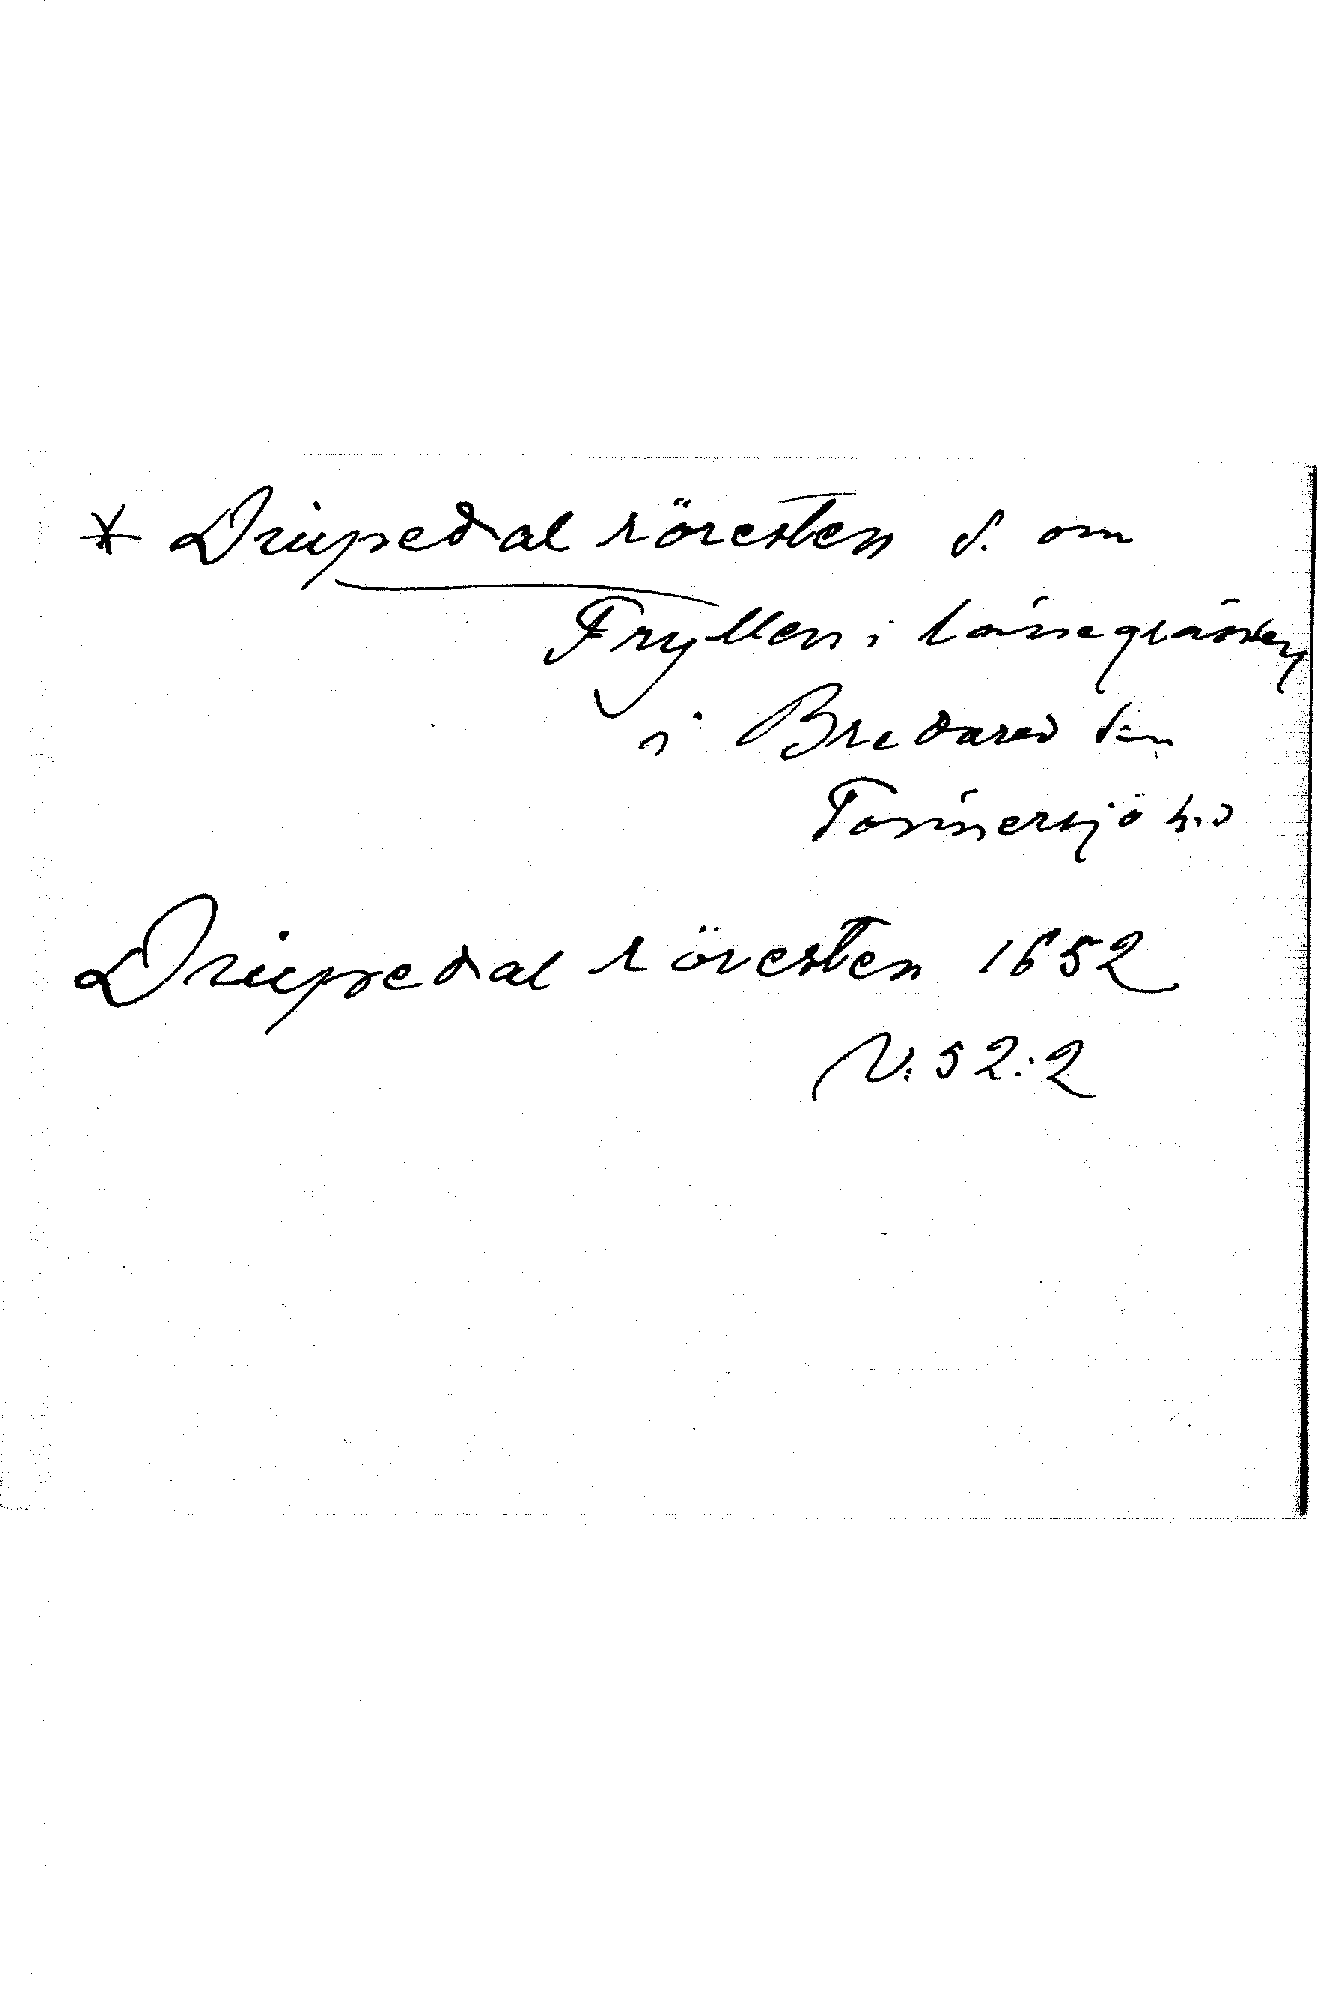 * Driupedal röresten S. om
Fryllen i länsgränsen
i Bredared sn
Tönnersjö hd
Driupedal röresten 1652
V: 52:2